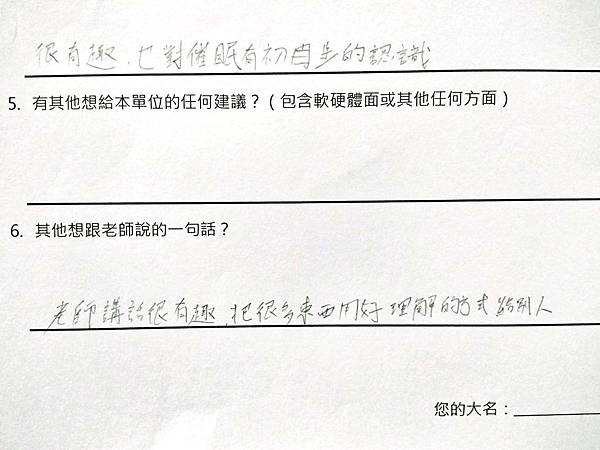 很有趣，也對催眠有初步的認識
5. 有其他想給本單位的任何建議？（包含軟硬體面或其他任何方面）
6. 其他想跟老師說的一句話？
老師講話很有趣，把很多東西用好理解的方式 給別人
您的大名：